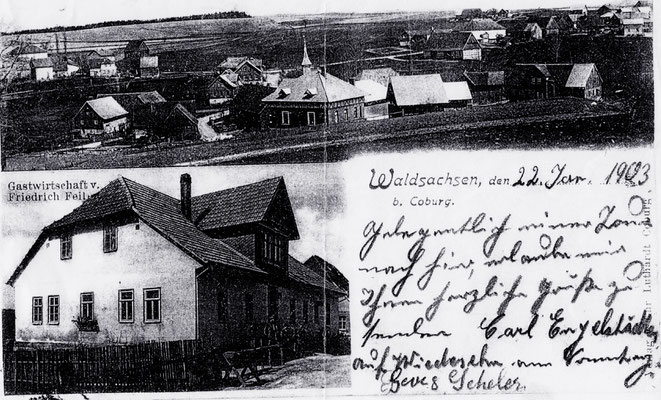 Gastwirtschaft v.
Friedrich Feil
Waldsachsen, den 22. Jan. 1903
b. Coburg.
Gelegentlich einer Tour
nach hier, erlaube mir
Ihnen herzliche Grüße zu
senden Carl Engelstädter
auf Wiedersehn am Sonntag
Scheler.
Luthardt Coburg